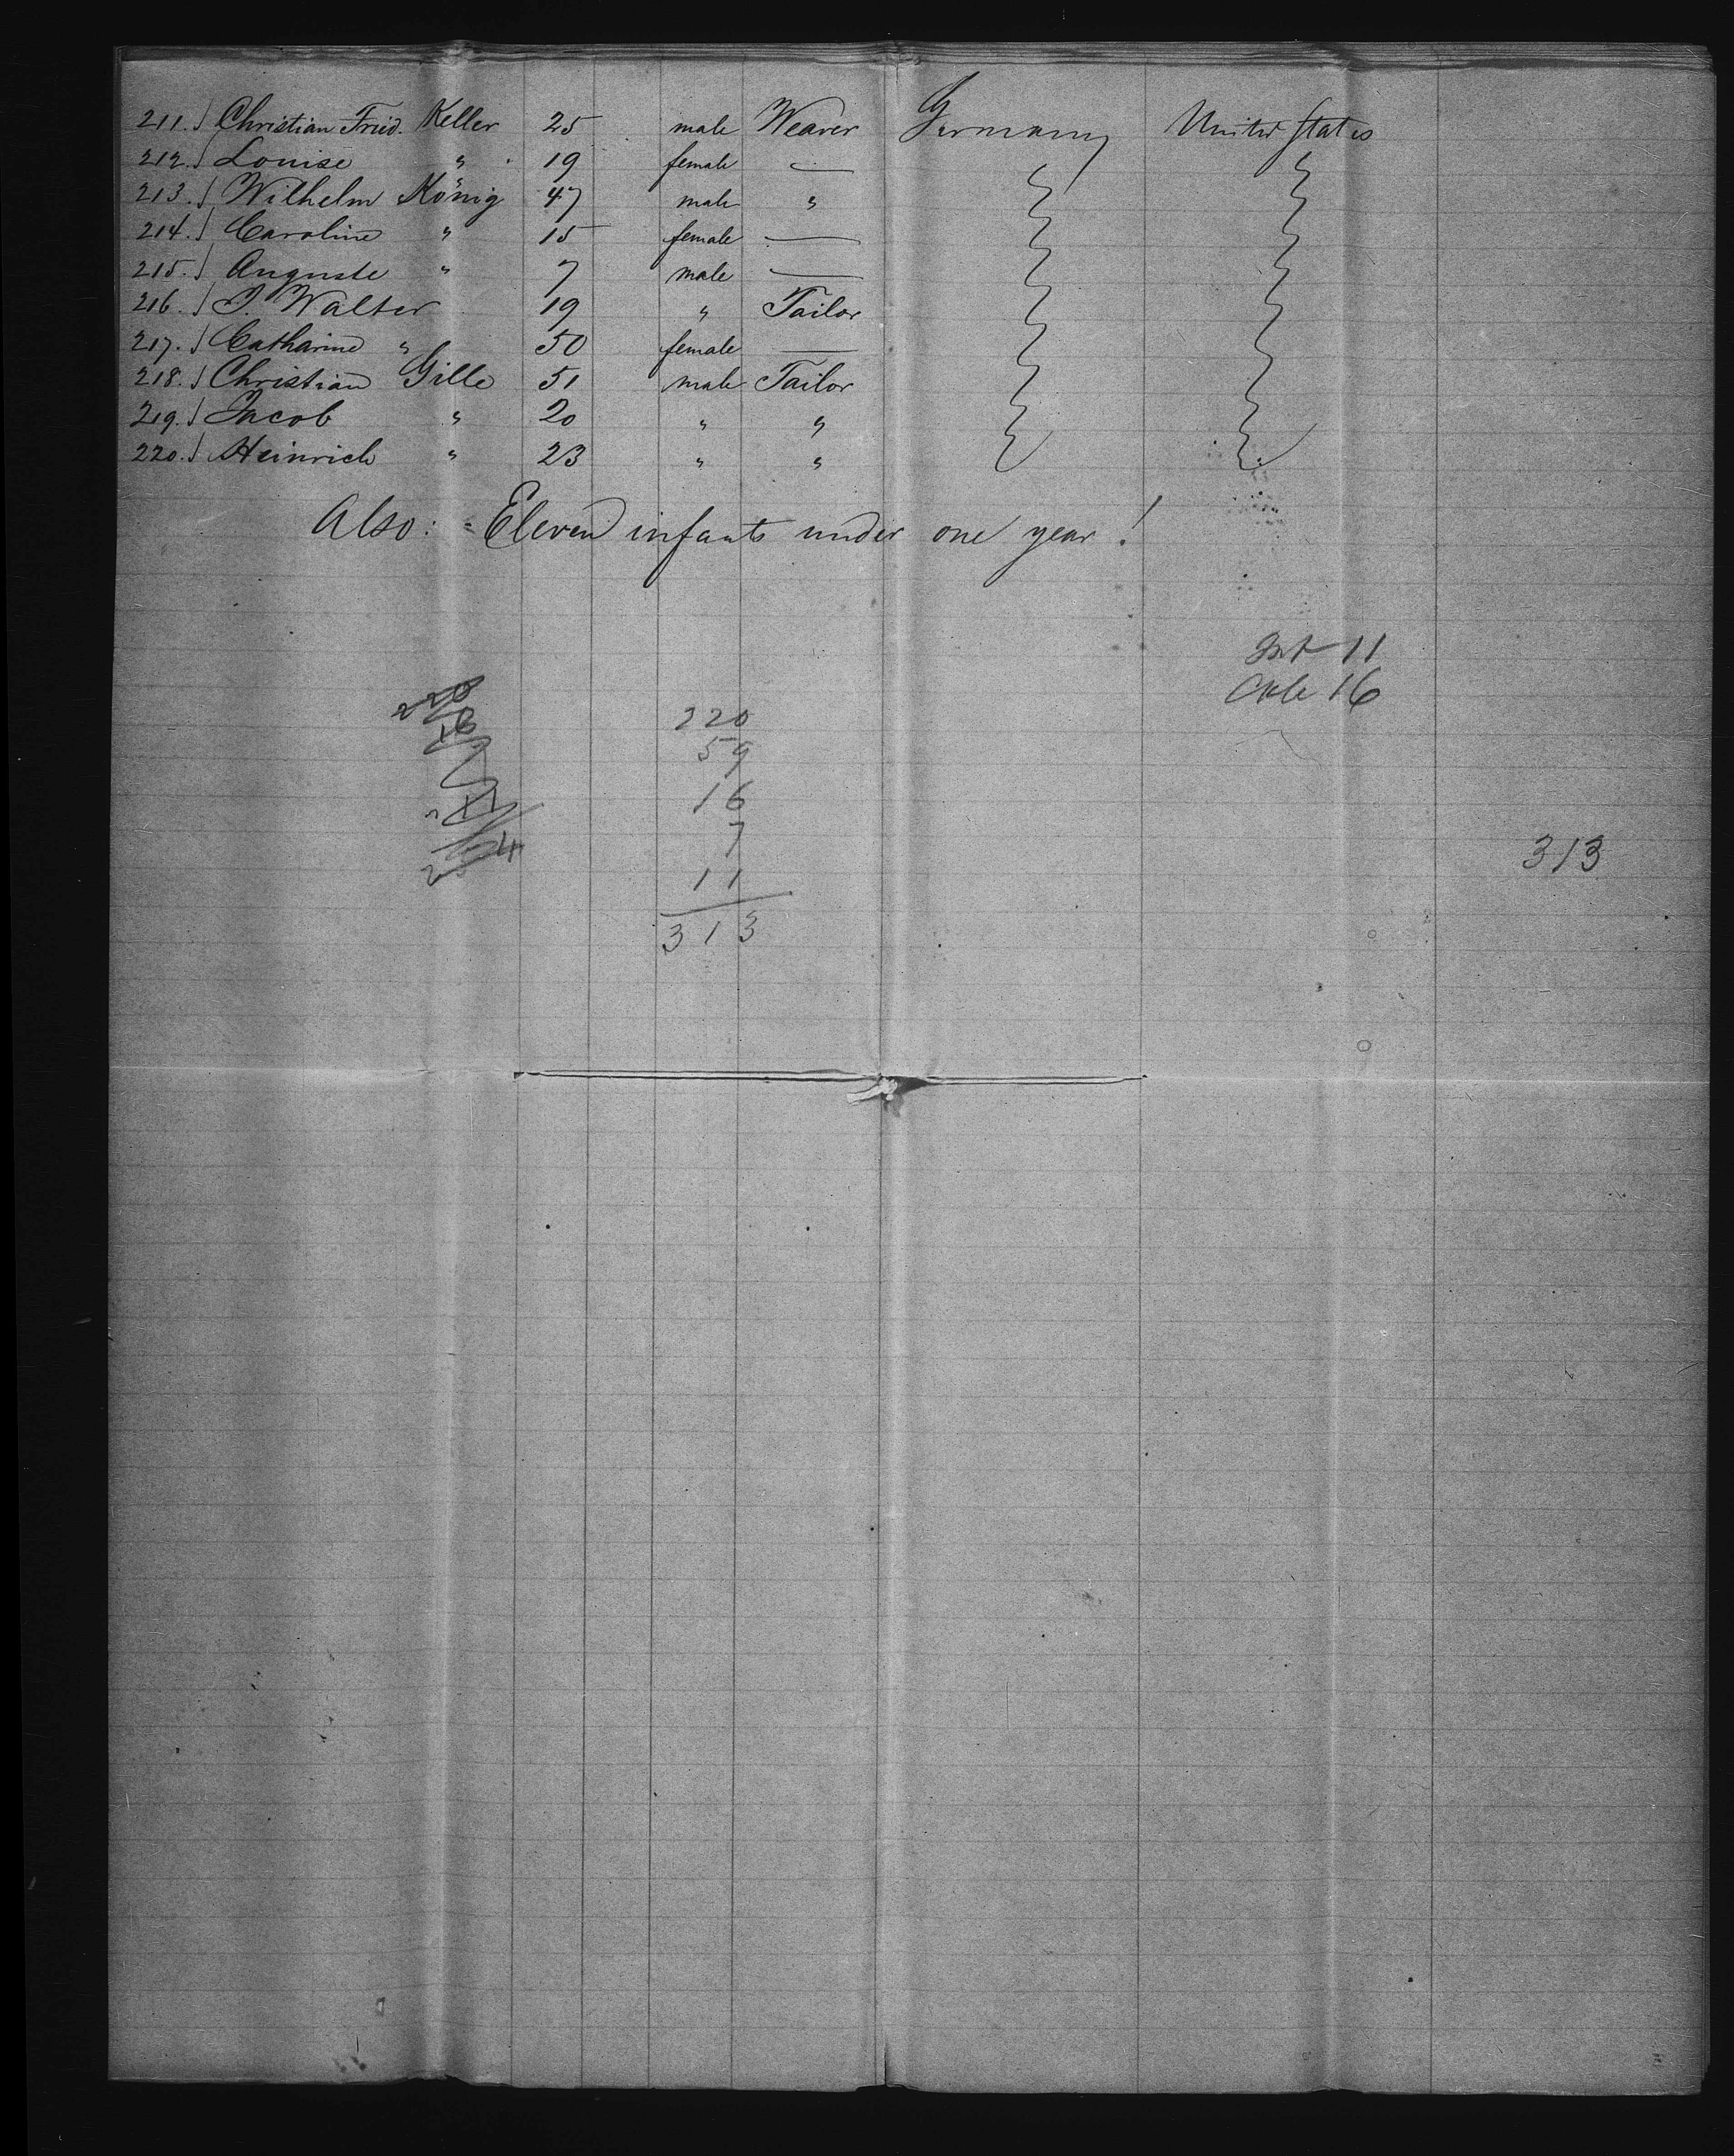 211. Christian Fried. Keller 25 male Weaver Germany United States
212. Louise " 19 female —
213. Wilhelm König 47 male "
214. Caroline " 15 female —
215. Auguste " 7 male —
216. J. Walter 19 " Tailor
217. Catharine " 50 female —
218. Christian Gille 51 male Tailor
219. Jacob " 20 " "
220. Heinrich " 23 " "
Also: = Eleven infants under one year!
Inf 11
16
220
59
16
7
11
313
313